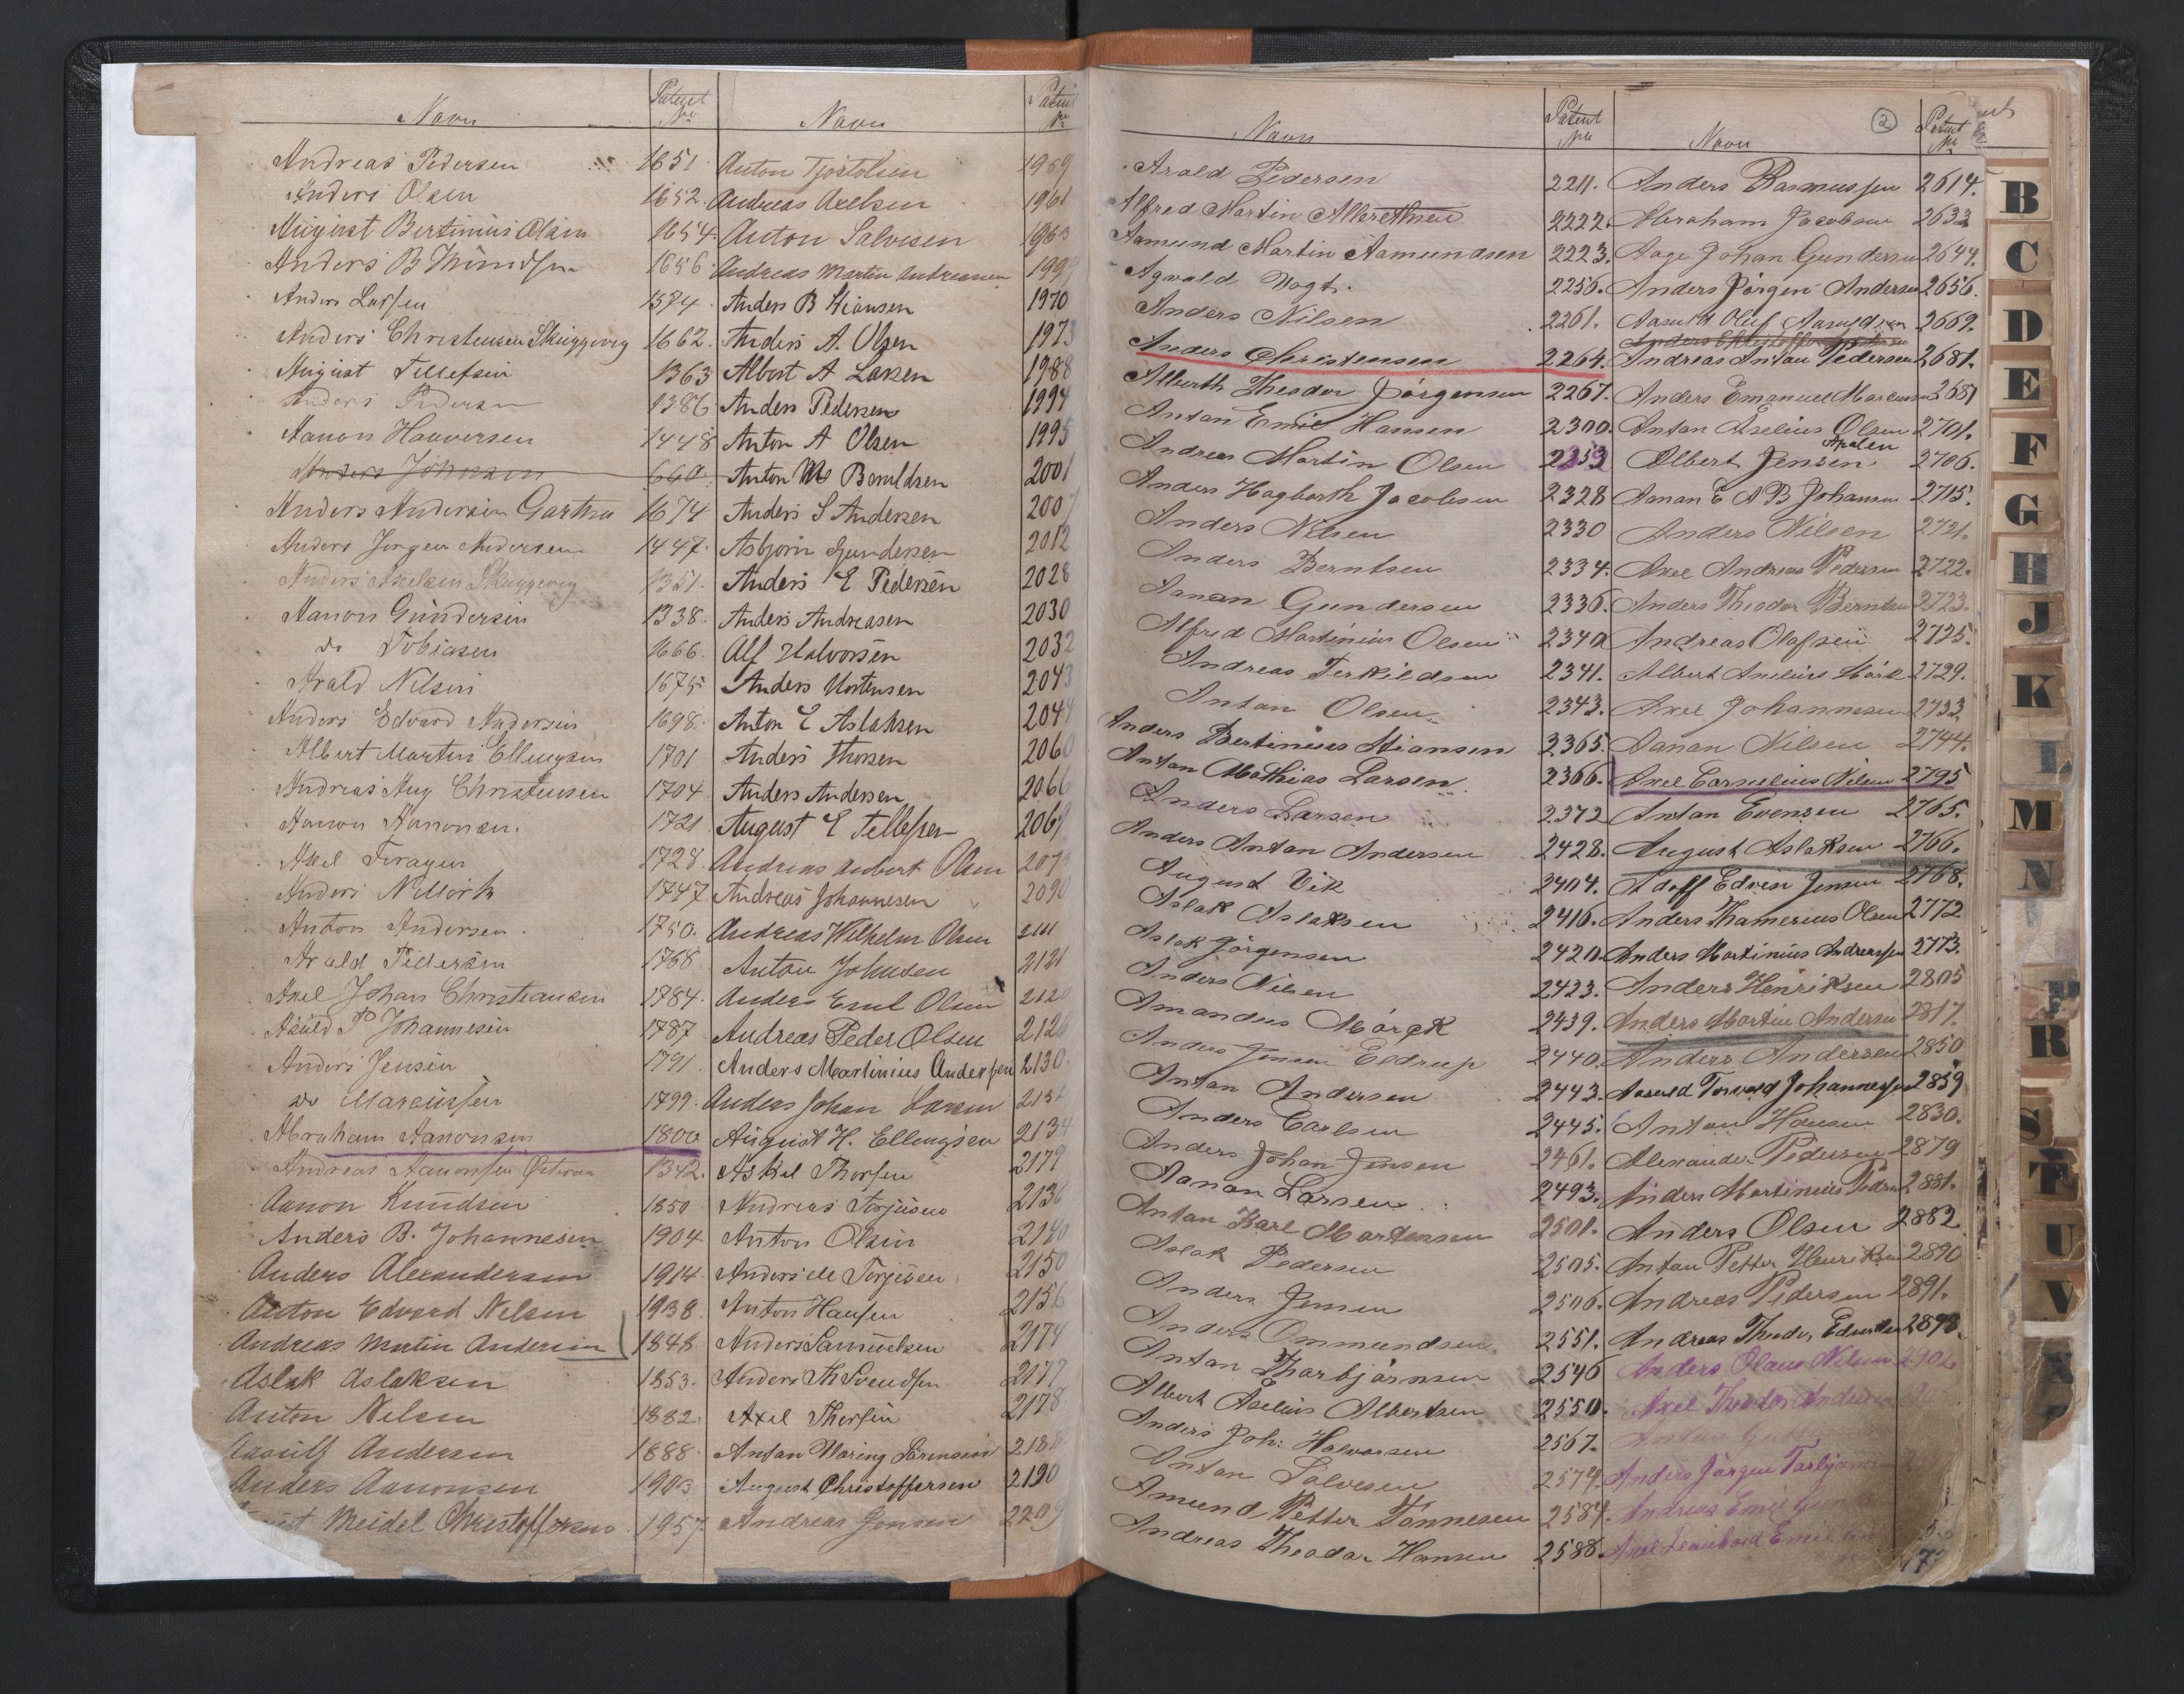 Navn
Patent No
Andreas Pedersen 1651
Anders Olsen 1652
August Bertinius Olsen 1654
Anders B 1656
Anders Larsen 1574
Anders Christensen Skuggevig 1662
August Tellefsen 1363
Anders Pedersen 1386
Aanon Haaversen 1448
Anders Johnsen 660
Anders Andersen Gartha 1674
Anders Jørgen Andersen 1447
Anders Axelsen Skuggevig 1351
Aanon Gundersen 1338
do Tobiasen 1666
Arald Nilsen 1675
Anders Edvard Andersen 1698
Albert Martin Ellingsen 1701
Andreas Aug Christensen 1704
Aanon Aanonsen 1721
Axel 1728
Anders 1747
Anton Andersen 1750
Arald Pedersen 1768
Axel Johan Christiansen 1784
P Johannesen 1787
Anders Jensen 1791
do Marcussen 1799
Abraham Aanonsen 1800
Andreas Aanonsen 1342
Aanon Knudsen 1850
Anders B. Johannesen 1904
Anders Alexandersen 1914
Anton Edvard Nelsen 1938
Andreas Martin Andersen 1848
Aslak Aslaksen 1853
Anton Nelsen 1882
Andersen 1888
Anders Aanonsen 1903
Meidel Christoffersen 1957
Navn
Patent No
Anton Tjostolsen 1959
Andreas Axelsen 1961
Anton Salvesen
Andreas Martin Andreassen
Anders B Stiansen 1970
Anders A. Olsen 1973
Albert A Larsen 1988
Anders Pedersen 1994
Anton A Olsen 1995
Anton Ms Boruldsen 2001
Anders S Andersen 2007
Asbjørn Gundersen 2012
Anders E Pedersen 2028
Anders Andreasen 2030
Alf Halvorsen 2032
Anders Mortensen 2043
Anton E Aslaksen 2044
Anders Thorsen 2060
Anders Andersen 2066
August E Tellefsen 2069
Andreas Aubert Olsen
Andreas Johannesen 2090
Andreas Wilhelm Olsen
Anton Johnsen 2121
Anders Emil Olsen
Andreas Peder Olsen 2126
Anders Martinius Andersen 2130
Anders Johan Larsen
August H. Ellingsen 2134
Askel Thorsen 2179
Andreas Torjusen 2136
Anton Olsen 2140
Anders M Torjusen 2150
Anton Hansen 2156
Anders Samuelsen 2174
Anders Th Svendsen 2177
Axel Thorsen 2178
Antan Maring Sørensen 2188
August Christoffersen 2190
Andreas Jensen 2209
Navn
Patent No
Arald Pedersen 2211.
Alfred Martin Albrethsen 2222.
Aamund Martin Aamundsen 2223.
Agvald Vogt. 2256.
Anders Nilsen 2261.
Anders Christensen 2264.
Alberth Theodor Jørgensen 2267.
Antan Emil Hansen 2300.
Andreas Martin Olsen 2353
Anders Hagbarth Jacobsen 2328
Anders Nilsen 2330
Anders Berntsen 2334.
Aanan Gundersen 2336.
Alfred Martinius Olsen 2340
Andreas Terkildsen 2341.
Antan Olsen 2343.
Anders Bertinius Stiansen 2365.
Antan Mathias Larsen 2366.
Anders Larsen 2372
Anders Antan Andersen 2428.
August Vik 2404.
Aslak Aslaksen 2416.
Aslak Jørgensen 2420.
Anders Nilsen 2423.
Amandus Mørck 2439.
Anders Jensen Eldrup 2440.
Antan Andersen 2443.
Anders Carlsen 2445.
Anders Johan Jensen 2461.
Aanan Larsen 2493.
Antan Karl Martensen 2501.
Aslak Pedersen 2505.
Anders Jensen 2506.
Anders Ommundsen 2551.
Antan Tharbjørnsen 2546
Albert Aselius Albertsen 2550.
Anders Joh: Halvorsen 2567.
Antan Salvesen 2574.
Amund Petter Tønnesen 2584.
Andreas Theodar Hansen 2588.
2
Navn
Patent No
Anders Rasmussen 2614.
Abraham Jacobsen 2633
Aage Johan Gundersen 2644.
Anders Jørgen Andersen 2656.
Aasuld Oluf Aasuldsen 2669.
Andreas Antan Pedersen 2681.
Anders Emanuel Marcussen 2687
Antan Aselius Olsen 2701.
Albert Jensen Apalen 2706.
Aanan E A B Johansen 2715.
Anders Nilsen 2721.
Axel Andreas Pedersen 2722.
Anders Theodor Berntsen 2723.
Andreas Olafsen 2725.
Albert Anelius Mörk 2729.
Axel Johannesen 2733
Aanan Nilsen 2744.
Axel Cornelius Nilsen 2795
Antan Evensen 2765.
August Aslaksen 2766.
Adolf Edvin Jensen 2768.
Anders Thamerius Olsen 2772
Anders Martinius Andreassen 2773.
Anders Henriksen 2805
Anders Martin Andersen 2817.
Anders Andersen 2850
Aasuld Torvald Johannessen 2859
Antan Hansen 2830.
Alexander Pedersen 2879
Anders Martinius Pedersen 2881.
Anders Olsen 2882
Antan Petter Henriksen 2890
Andreas Pedersen 2891.
Andreas Theodor Edvardsen 2898.
Anders Olaus Nilsen
Axel Theodor Andersen
Anders Jørgen Tarbjørnsen
Andreas Emil
Axel Emil
B
C
D
E
F
G
H
J
K
L
M
N
P
R
S
T
U
V